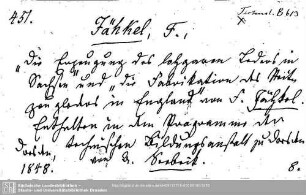 451.
Technol. B 613
Jähkel, F.,
"Die Erzeugung des lohgaren Leders in
Sachsen" und "die Fabrikation des
zeugleders in England" von F. Jähkel.
Enthalten in dem Programme der
technischen Bildungsanstalt zu Dresden
Dresden, von A. Seebeck.
1848. 8.
Sächsische Landesbibliothek -
Staats- und Universitätsbibliothek Dresden